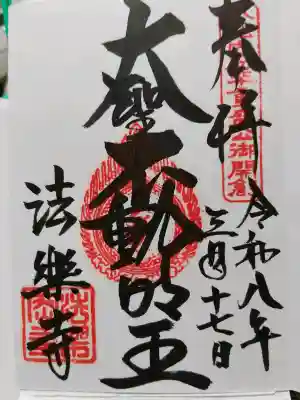 奉拝
令和八年
三月十七日
大聖不動明王
法樂寺